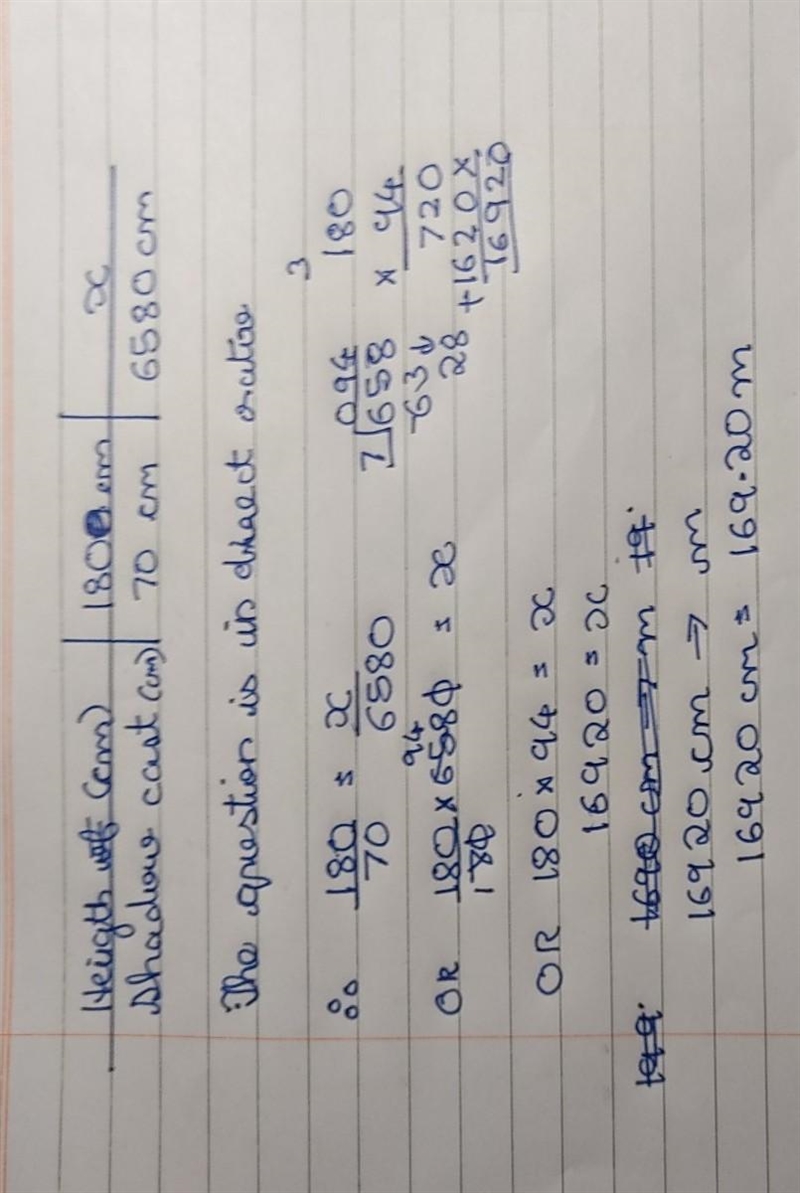 Heingth of (cm) | 180 cm | x
Shadow cast (cm) | 70 cm | 6580 cm
The question is in direct ratio
∴ 180/70 = x/6580
OR 180 × 6580/70 = x
94
OR 180 × 94 = x
16920 = x
16920 cm ⇒ m
16920 cm = 169.20 m
094
7)658
63↓
28
3
180
× 94
720
+1620×
16920